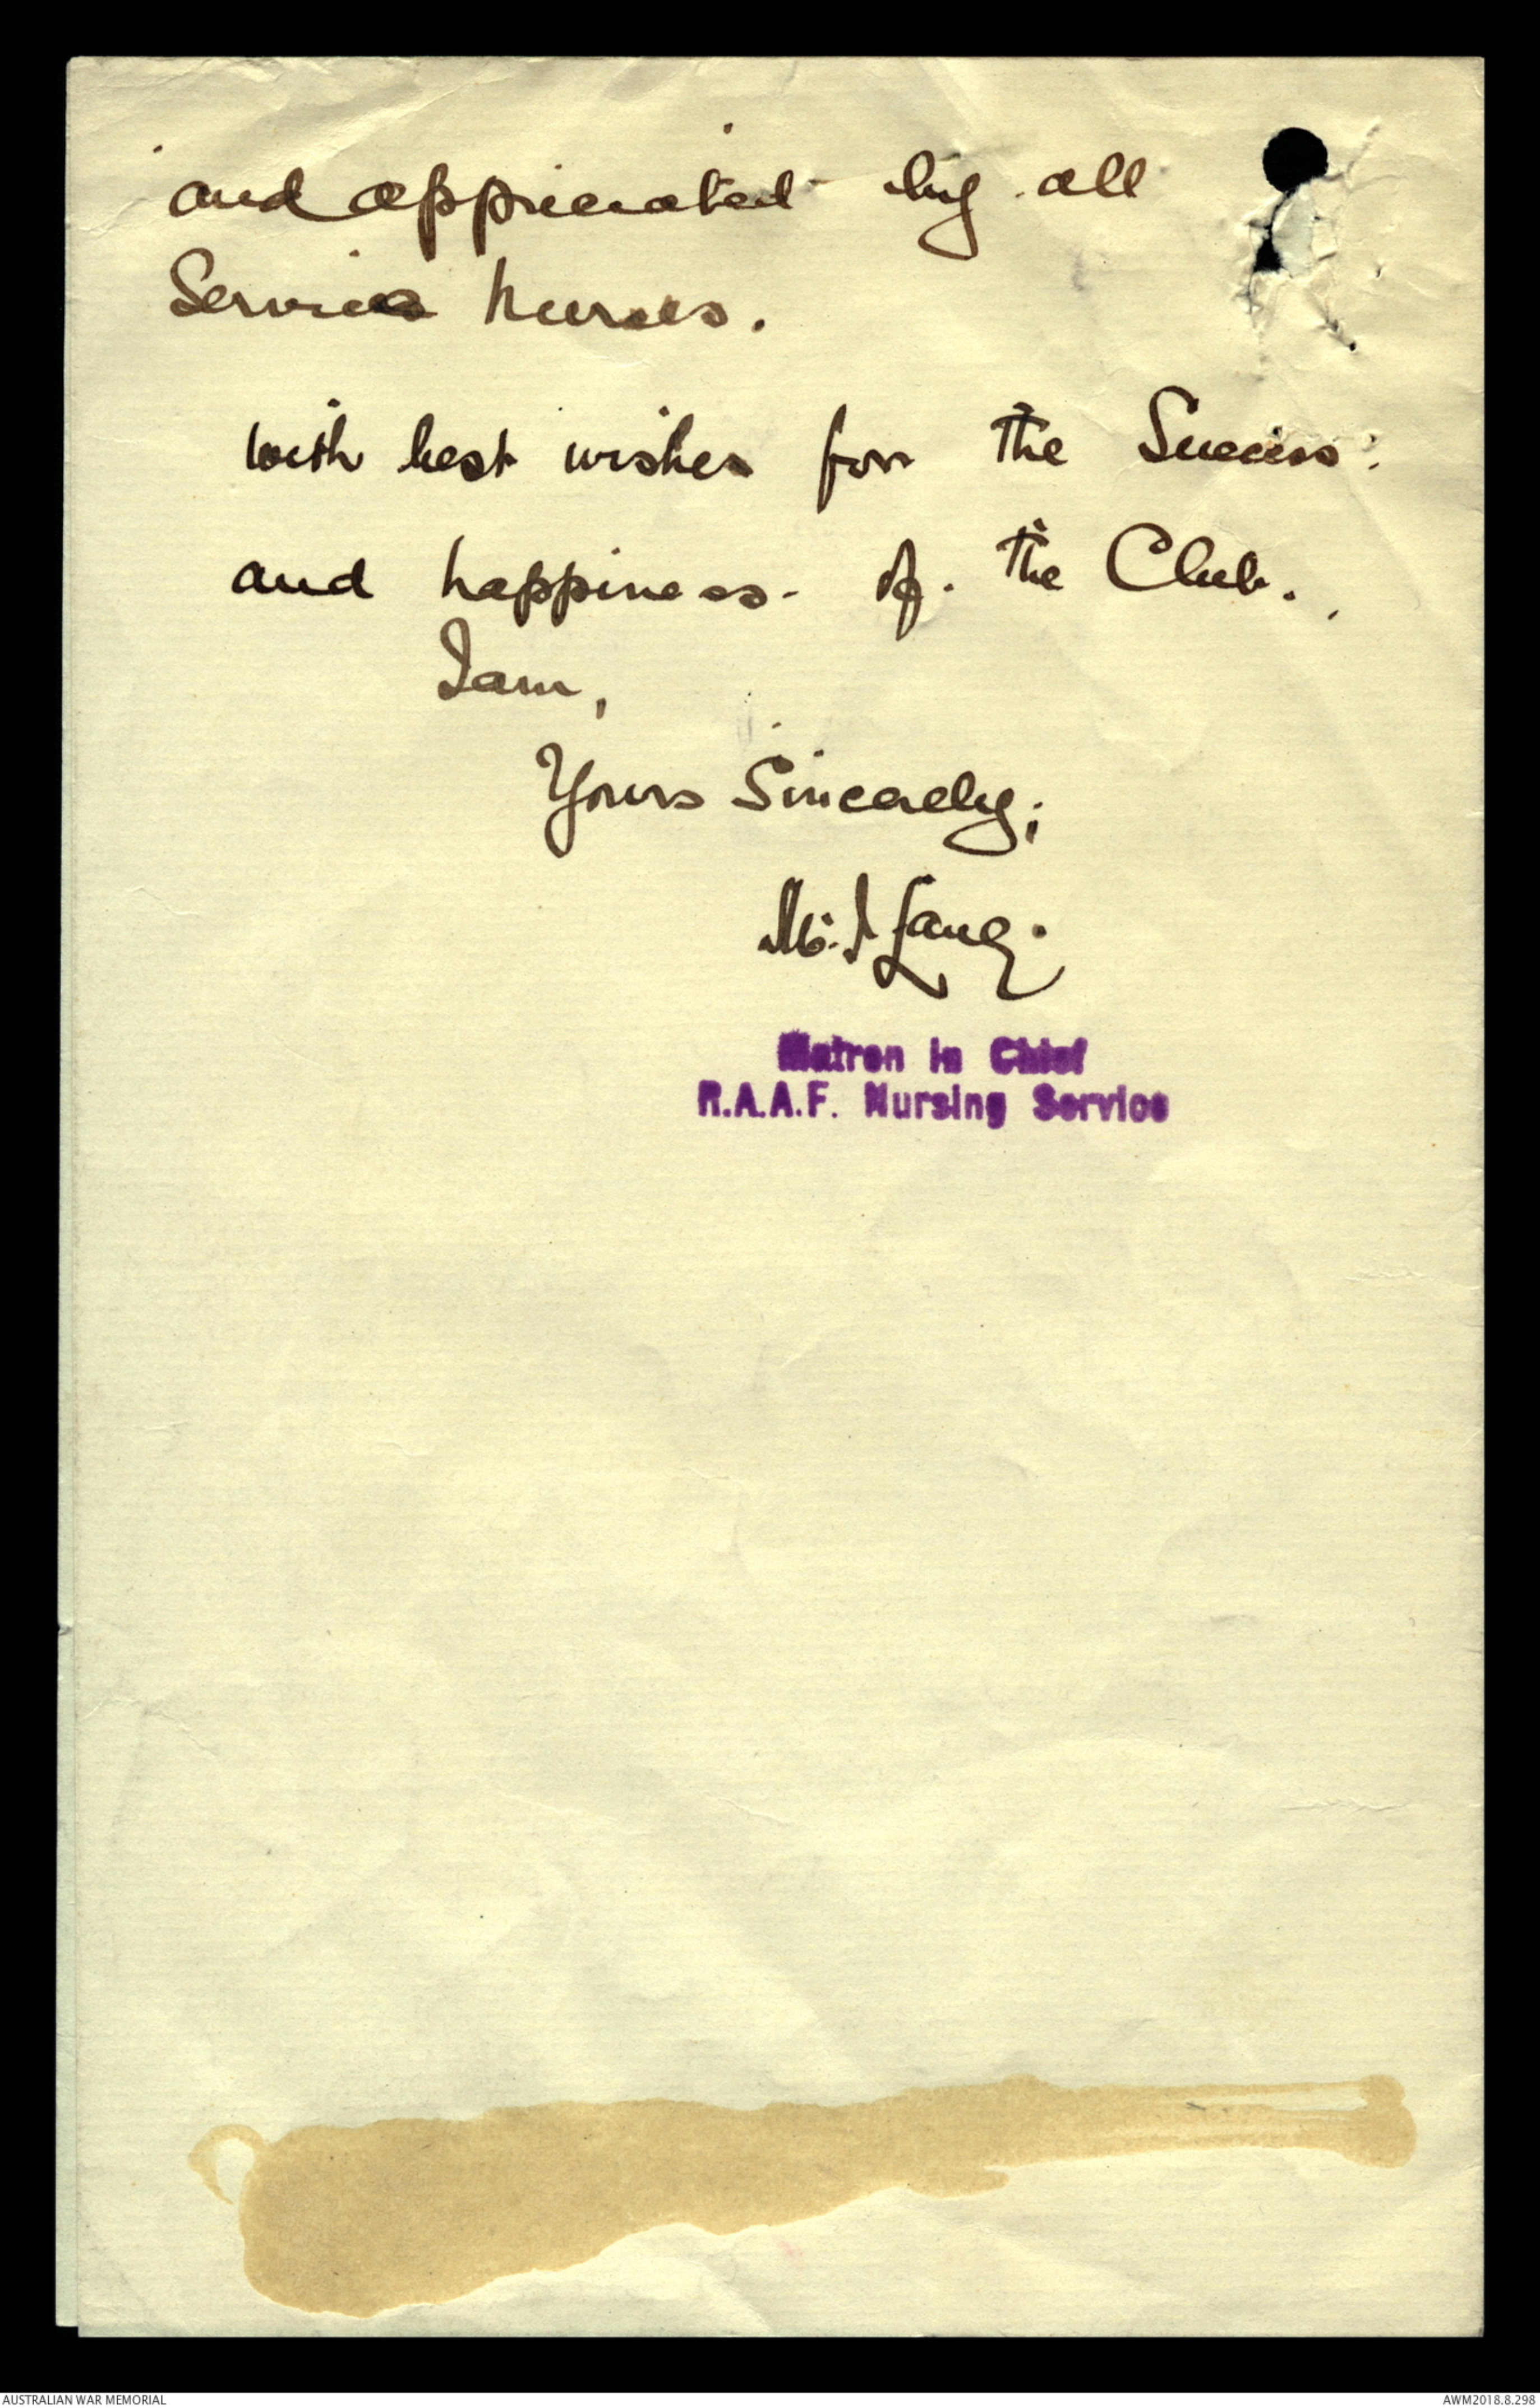 and appreciated by all
Service Nurses.
With best wishes for the Success
and happiness of the Club.
I am,
Yours Sincerely,
M. I Lang.
Matron in Chief
R.A.A.F. Nursing Service
AUSTRALIAN WAR MEMORIAL
AWM2018.8.298